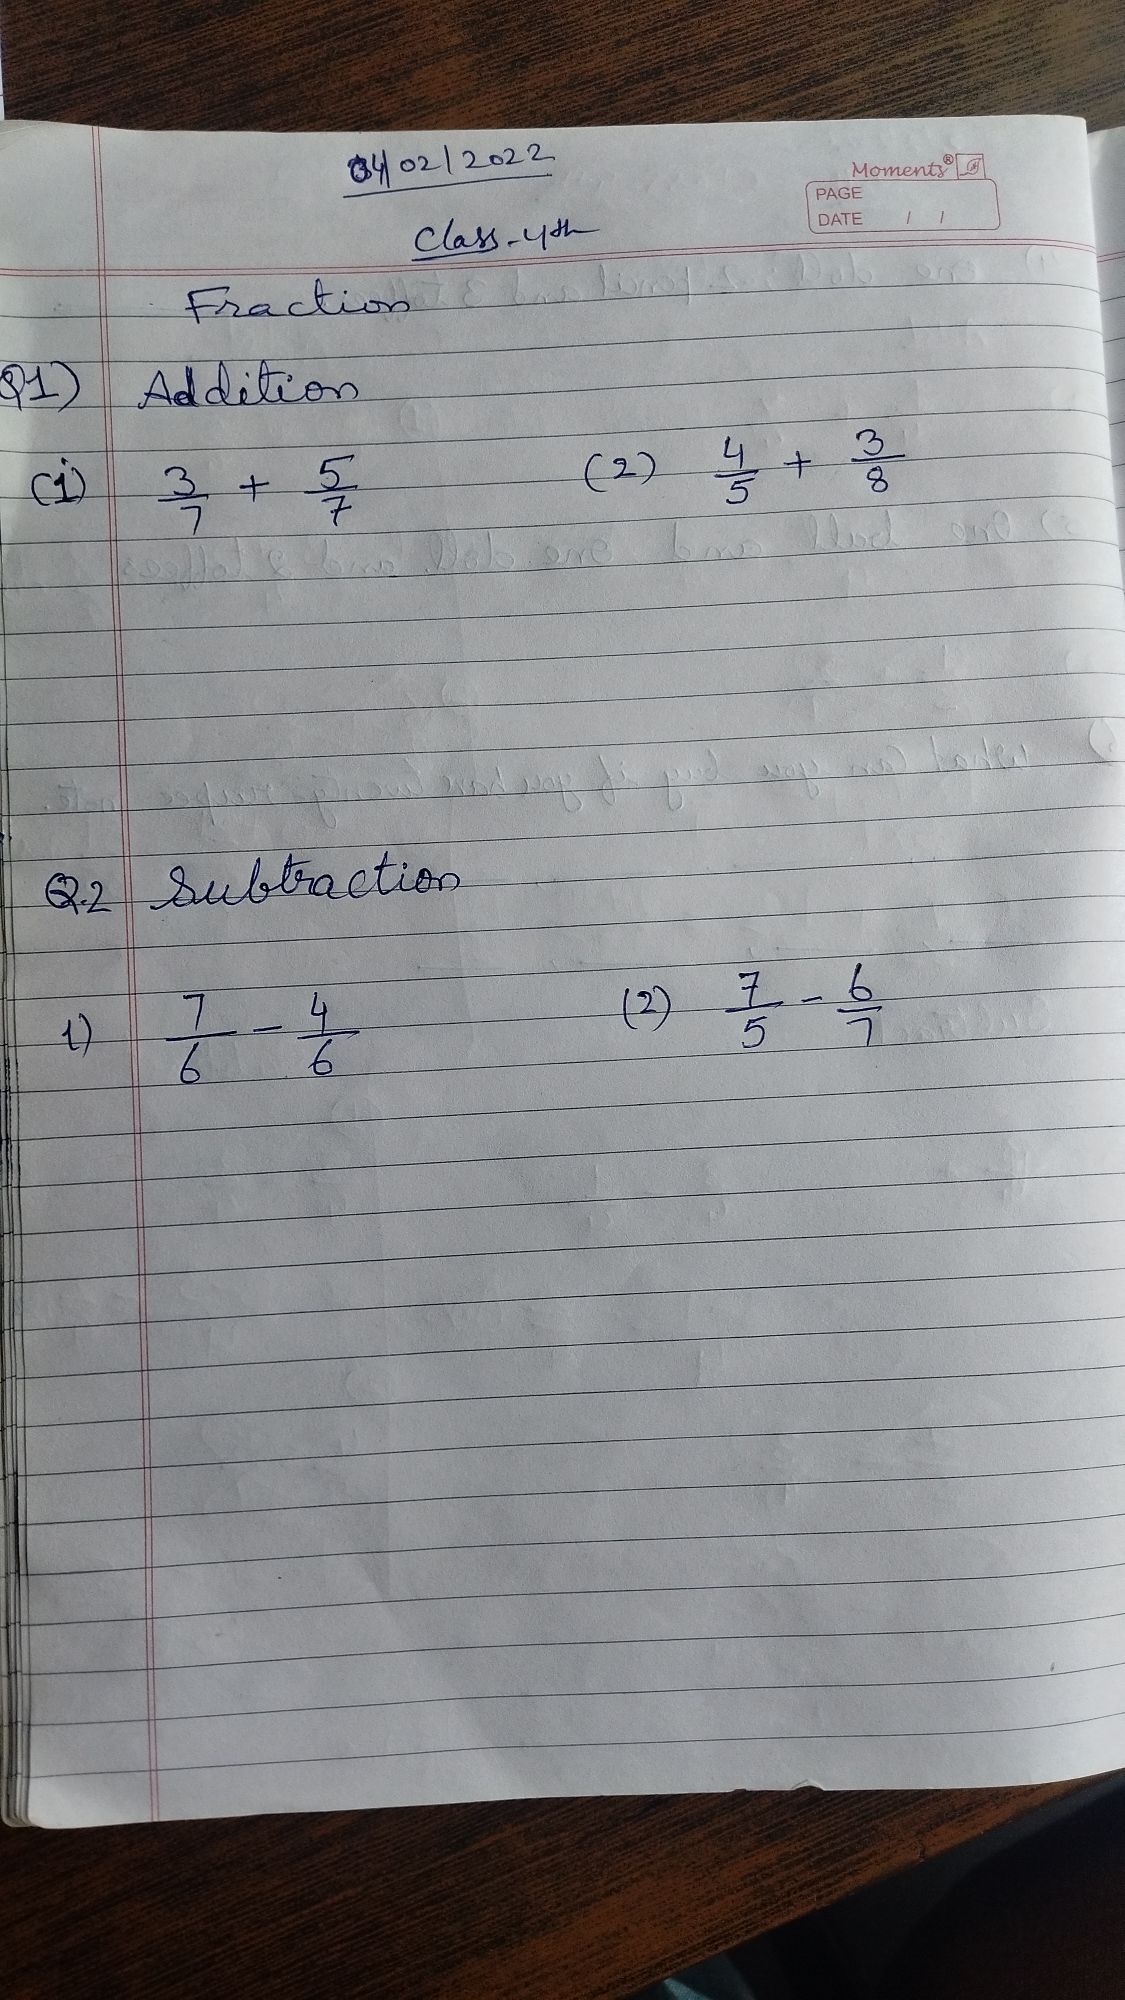 04/02/2022
Moments®
PAGE
DATE / /
Class-4th
Fraction
Q1) Addition
(1) 3/7 + 5/7 (2) 4/5 + 3/8
Q.2 Subtraction
1) 7/6 - 4/6 (2) 7/5 - 6/7